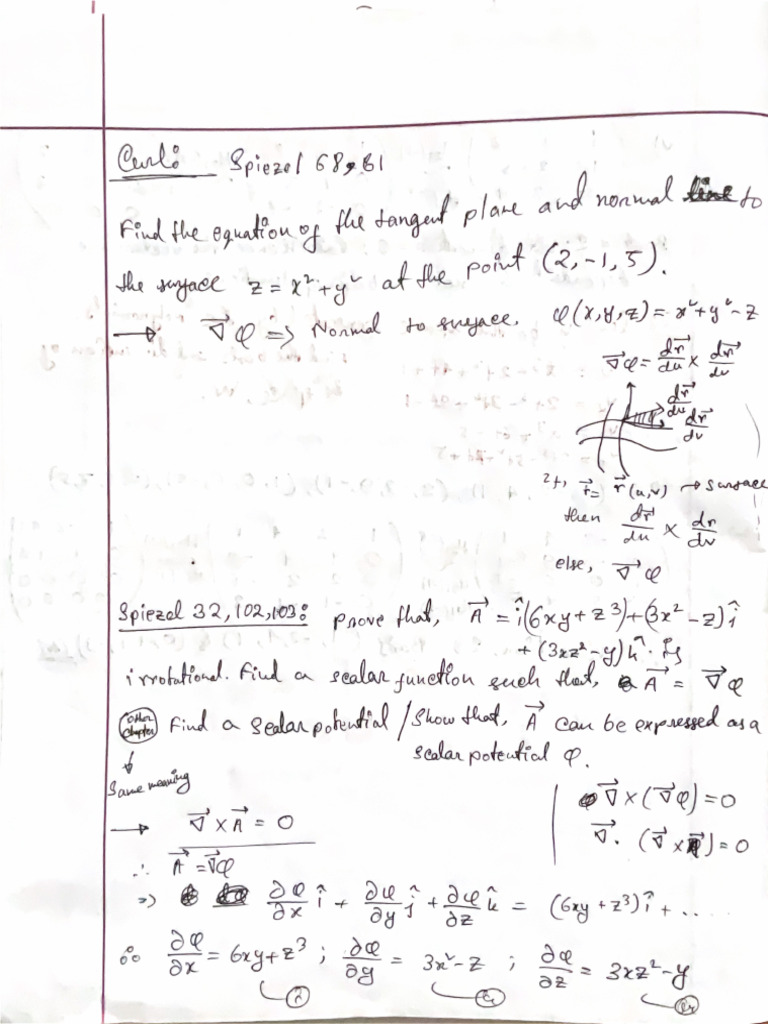 Curl: Spiezel 68, 81
Find the equation of the tangent plane and normal line to
the surface z = x² + y² at the point (2, -1, 5).
→ ∇⃗φ => Normal to surface. φ(x,y,z) = x² + y² - z
∇⃗φ = dr⃗/du × dr⃗/dv
dr⃗/du
dr⃗/dv
r⃗ = r⃗(u,v) → surface
then dr⃗/du × dr/dv
else, ∇⃗φ
Spiezel 32, 102, 103: prove that, A⃗ = î(6xy + z³) + (3x² - z)î
+ (3xz² - y)k̂. is
irrotational. Find a scalar function such that, A⃗ = ∇⃗φ
other chapter Find a scalar potential / Show that, A⃗ can be expressed as a
scalar potential φ.
↓
Same meaning
∇⃗ × (∇⃗φ) = 0
→ ∇⃗ × A⃗ = 0
∇⃗. (∇⃗ × A⃗) = 0
∴ A⃗ = ∇⃗φ
=> ∂φ/∂x î + ∂φ/∂y ĵ + ∂φ/∂z k̂ = (6xy + z³)î + .....
∴ ∂φ/∂x = 6xy + z³ ; ∂φ/∂y = 3x² - z ; ∂φ/∂z = 3xz² - y